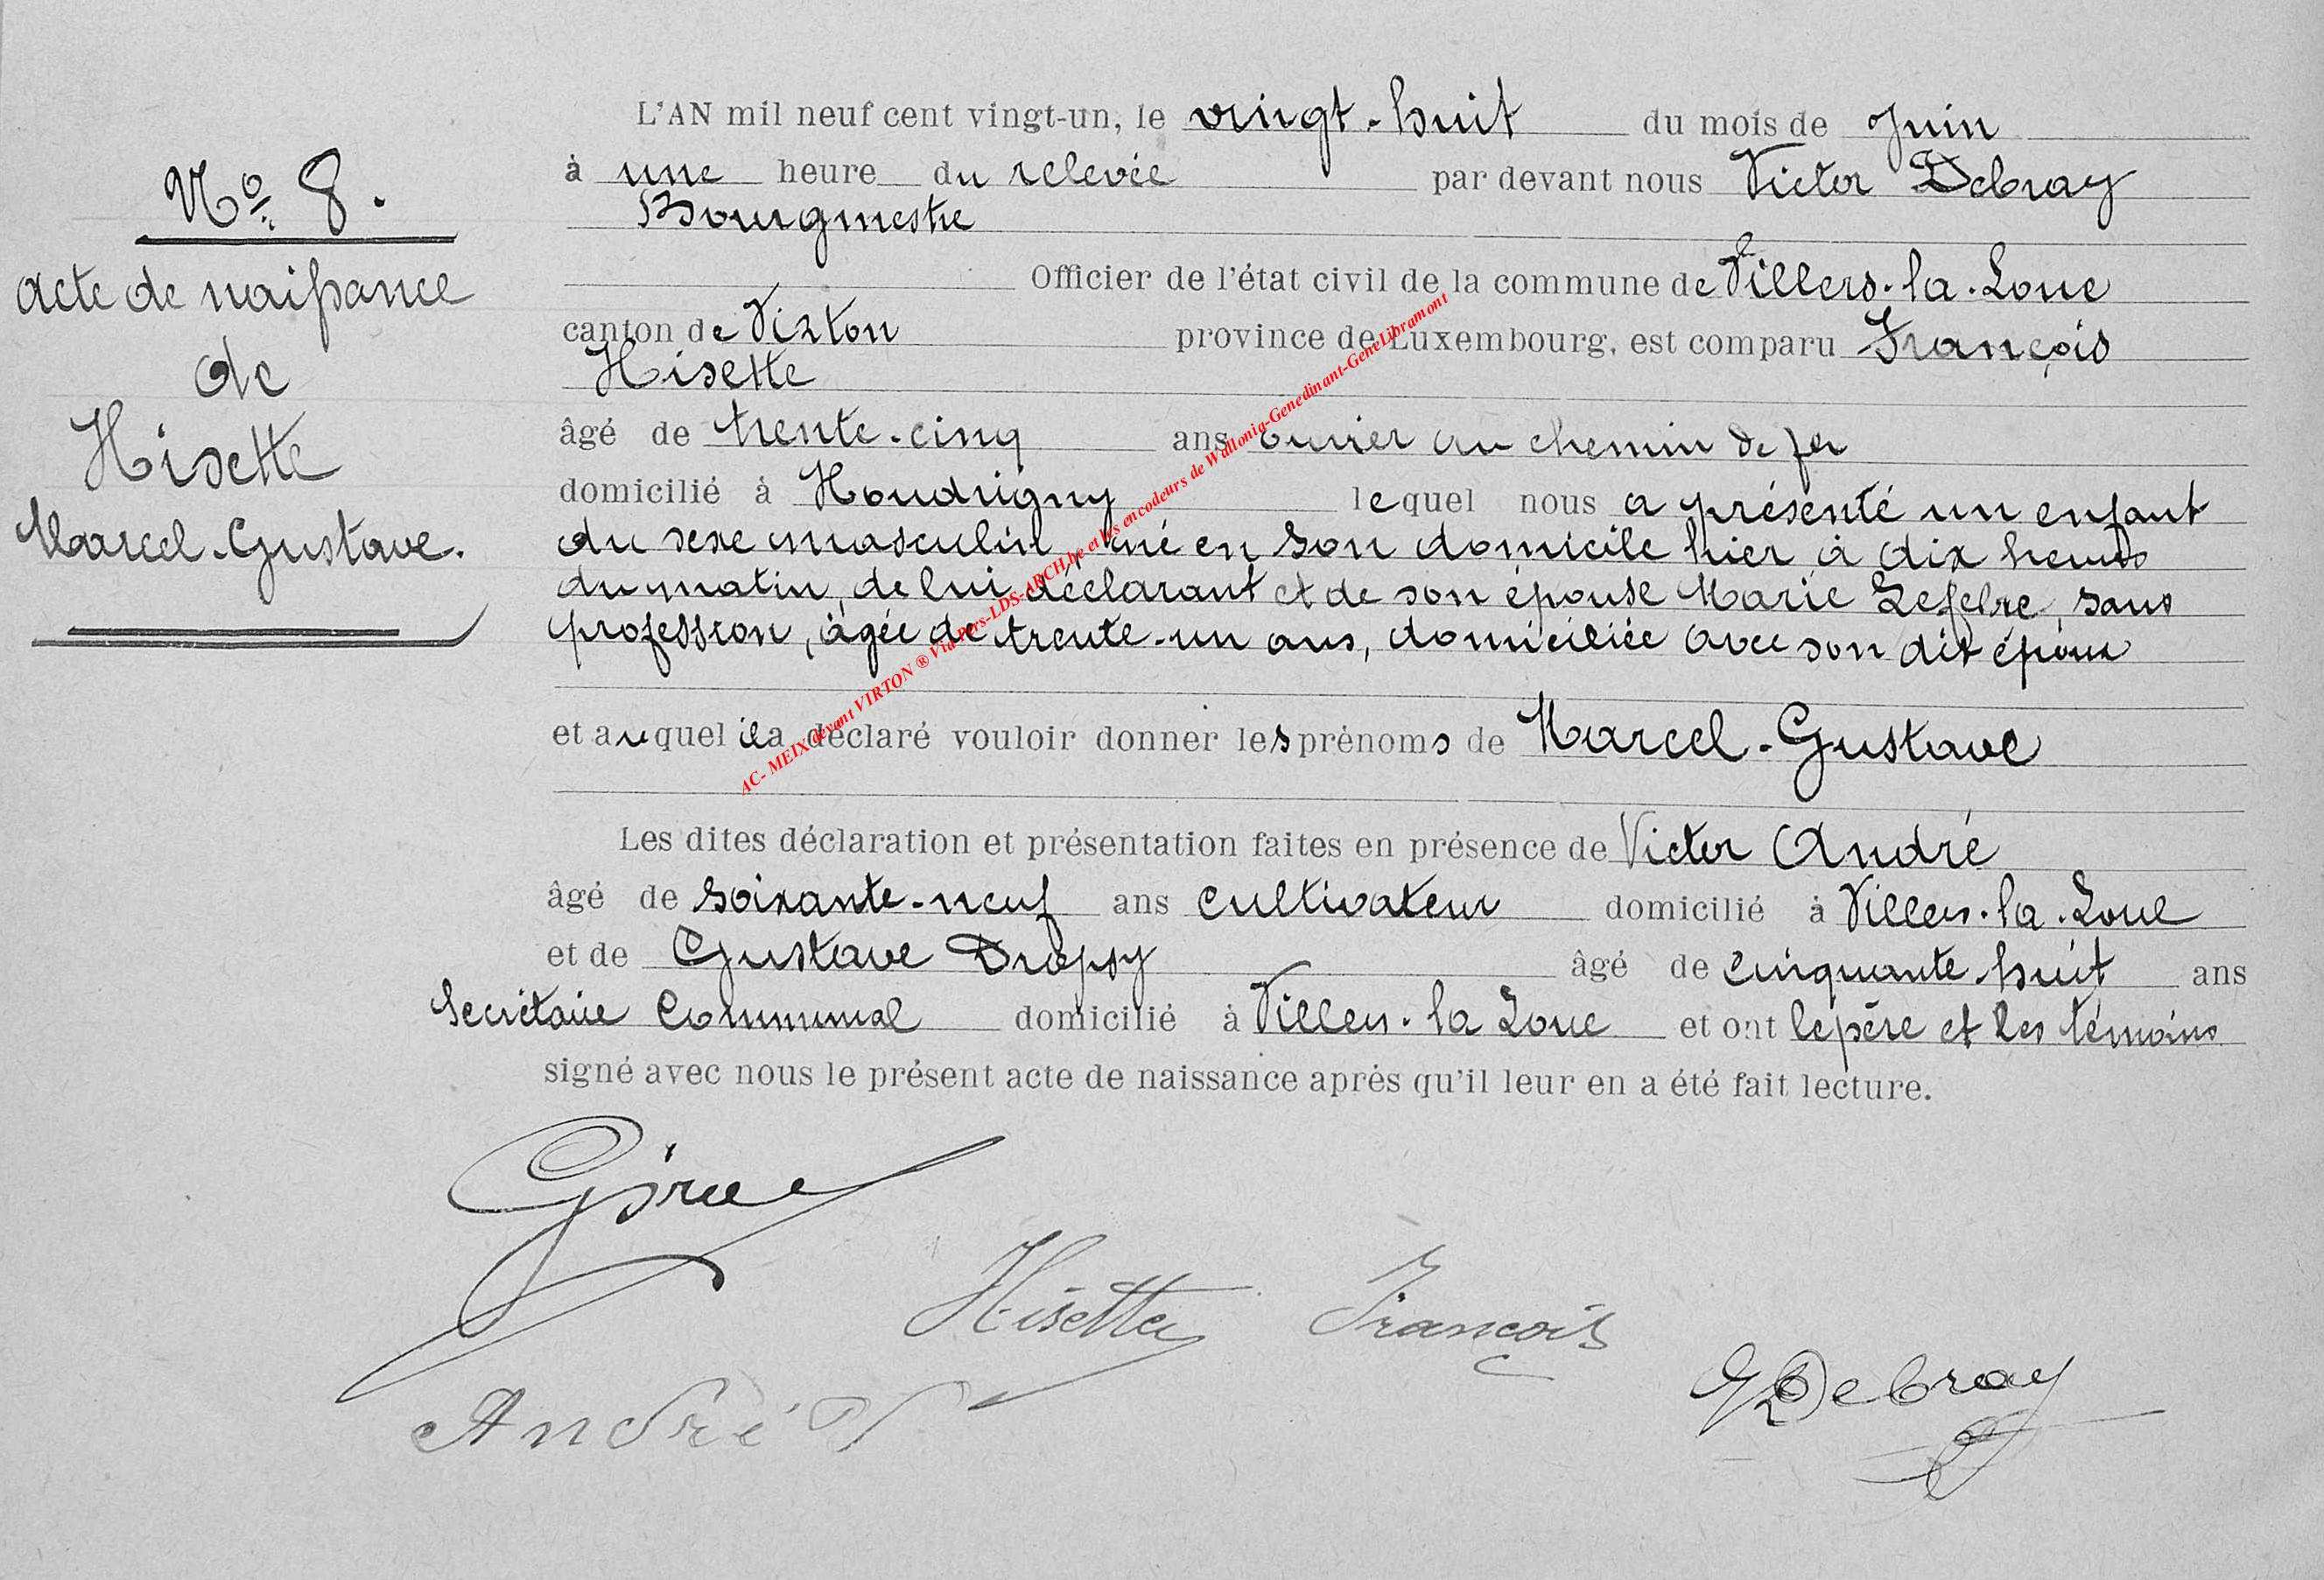 Nº 8.
acte de naissance
de
Hisette
Marcel-Gustave.
L'AN mil neuf cent vingt-un, le vingt-huit du mois de Juin
à une heure du relevée par devant nous Victor Debray
Bourgmestre
Officier de l'état civil de la commune de Villers-la-Loue
canton de Virton province de Luxembourg, est comparu François
Hisette
âgé de trente-cinq ans ouvrier au chemin de fer
domicilié à Houdrigny lequel nous a présenté un enfant
du sexe masculin, né en son domicile hier à dix heures
du matin, de lui déclarant et de son épouse Marie Lefebre, sans
profession, âgée de trente-un ans, domiciliée avec son dit époux
et auquel il a déclaré vouloir donner les prénoms de Marcel-Gustave
Les dites déclaration et présentation faites en présence de Victor André
âgé de soixante-neuf ans cultivateur domicilié à Villers-la-Loue
et de Gustave Dropsy âgé de cinquante-huit ans
Secrétaire Communal domicilié à Villers-la Loue et ont le père et les témoins
signé avec nous le présent acte de naissance après qu'il leur en a été fait lecture.
Hisette François
André V
Debray
AC- MEIX devant VIRTON ® Via Pers-LDS-ARCH.be et les encodeurs de Wallonia-Genedinant-GeneLibramont